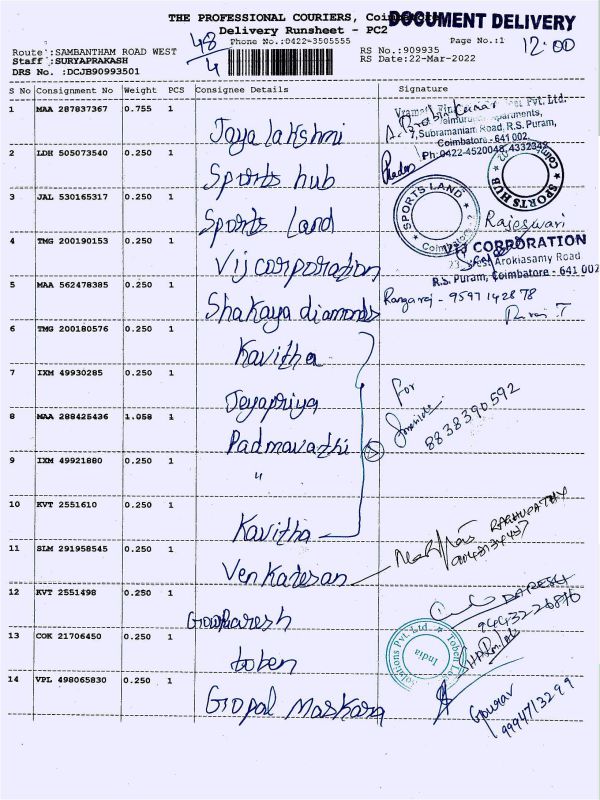 THE PROFESSIONAL COURIERS,
DOCUMENT DELIVERY
Delivery Runsheet - PC2
48/4
Phone No.:0422-3505555
Page No.:1
12:00
Route :SAMBANTHAM ROAD WEST
RS No.:909935
Staff :SURYAPRAKASH
RS Date:22-Mar-2022
DRS No. :DCJB90993501
S No Consignment No Weight PCS Consignee Details Signature
1 MAA 287837367 0.755 1 Jayalakshmi
Pvt. Ltd.
Subramaniam Road, R.S. Puram,
Coimbatore - 641 002.
Ph:0422-4520048, 4332342
2 LDH 505073540 0.250 1 Sports hub
SPORTS HUB
3 JAL 530165317 0.250 1 Sports Land
SPORTS LAND
Coimbatore-2
Rajeswari
4 TMG 200190153 0.250 1 Vij corporation
VIJ CORPORATION
23, West Arokiasamy Road
R.S. Puram, Coimbatore - 641 002
5 MAA 562478385 0.250 1 Shakaya diamonds
Rangaraj - 9597142878
6 TMG 200180576 0.250 1 Kavitha
7 IXM 49930285 0.250 1 Jeyapriya
For
8838390592
8 MAA 288425436 1.058 1 Padmavathi
9 IXM 49921880 0.250 1 "
10 KVT 2551610 0.250 1 Kavitha
RAGHUPATHY
11 SLM 291958545 0.250 1 Venkatesan
12 KVT 2551498 0.250 1
13 COK 21706450 0.250 1 toben
India
14 VPL 498065830 0.250 1 Gopal Maskara
Gourav
9994713299